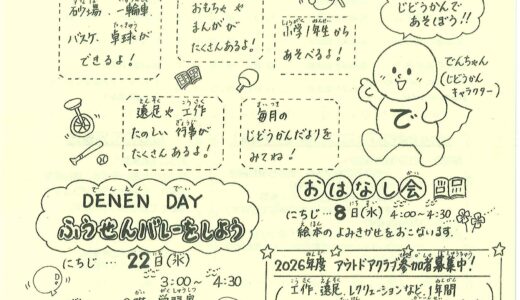 砂場、一輪車
バスケ、卓球が
できるよ！
おもちゃや
まんがが
たくさんあるよ！
小学1年生から
あそべるよ！
じどうかんで
あそぼう!!
でんちゃん
(じどうかん
キャラクター)
で
遠足や工作
たのしい行事が
たくさんあるよ！
毎月の
じどうかんだよりを
みてね！
DENEN DAY
ふうせんバレーをしよう
にちじ…22日(水)
3:00～4:30
おはなし会
にちじ…8日(水) 4:00～4:30
絵本のよみきかせをおこないます。
2026年度 アウトドアクラブ参加者募集中！
工作、遠足、レクリエーションなど、1年間